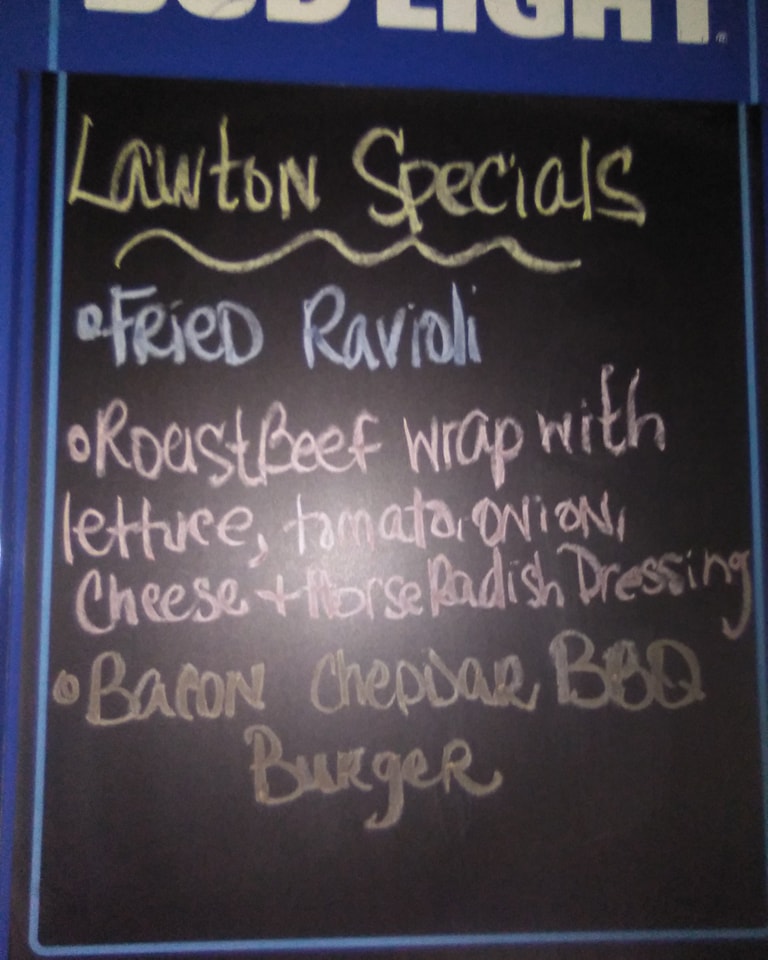 BUD LIGHT
Lawton Specials
Fried Ravioli
Roast Beef wrap with
lettuce, tomato, onion,
Cheese + HorseRadish Dressing
Bacon Cheddar BBQ
Burger